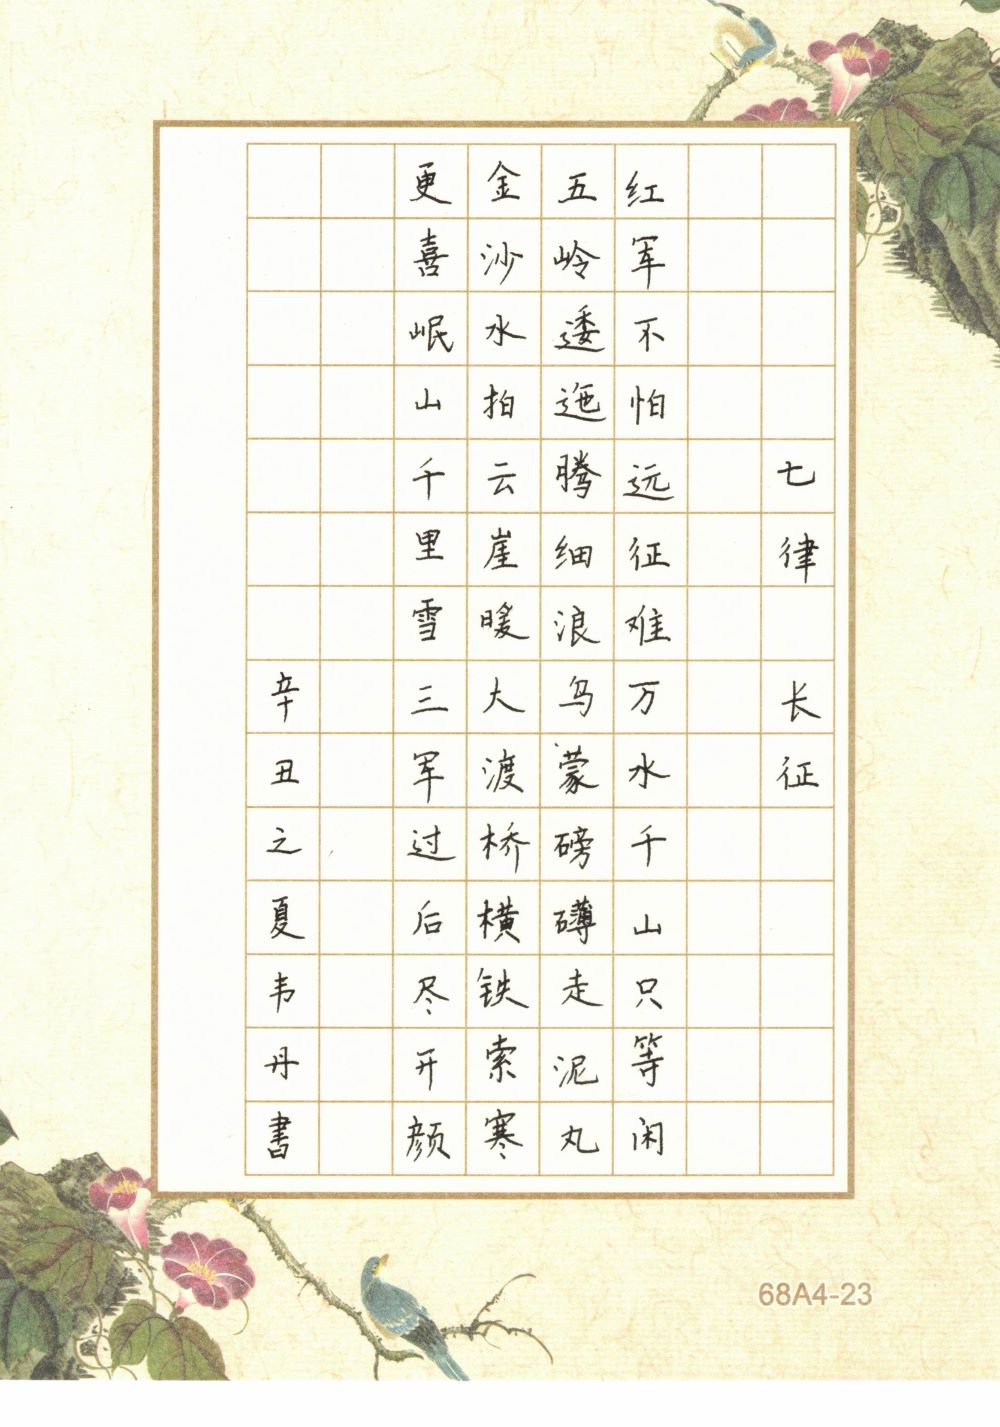 七律 长征
红军不怕远征难万水千山只等闲
五岭逶迤腾细浪乌蒙磅礴走泥丸
金沙水拍云崖暖大渡桥横铁索寒
更喜岷山千里雪三军过后尽开颜
辛丑之夏韦丹書
68A4-23